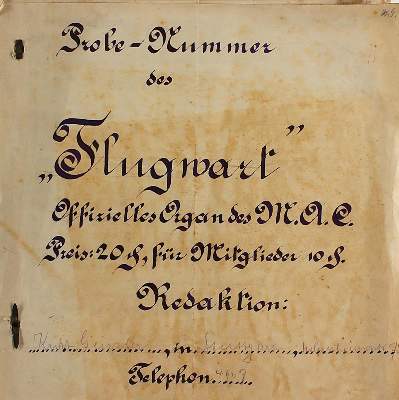 Probe-Nummer
des
„Flugwart”
Offizielles Organ des M.A.C.
Preis: 20 h, für Mitglieder 10 h.
Redaktion:
in
Telephon